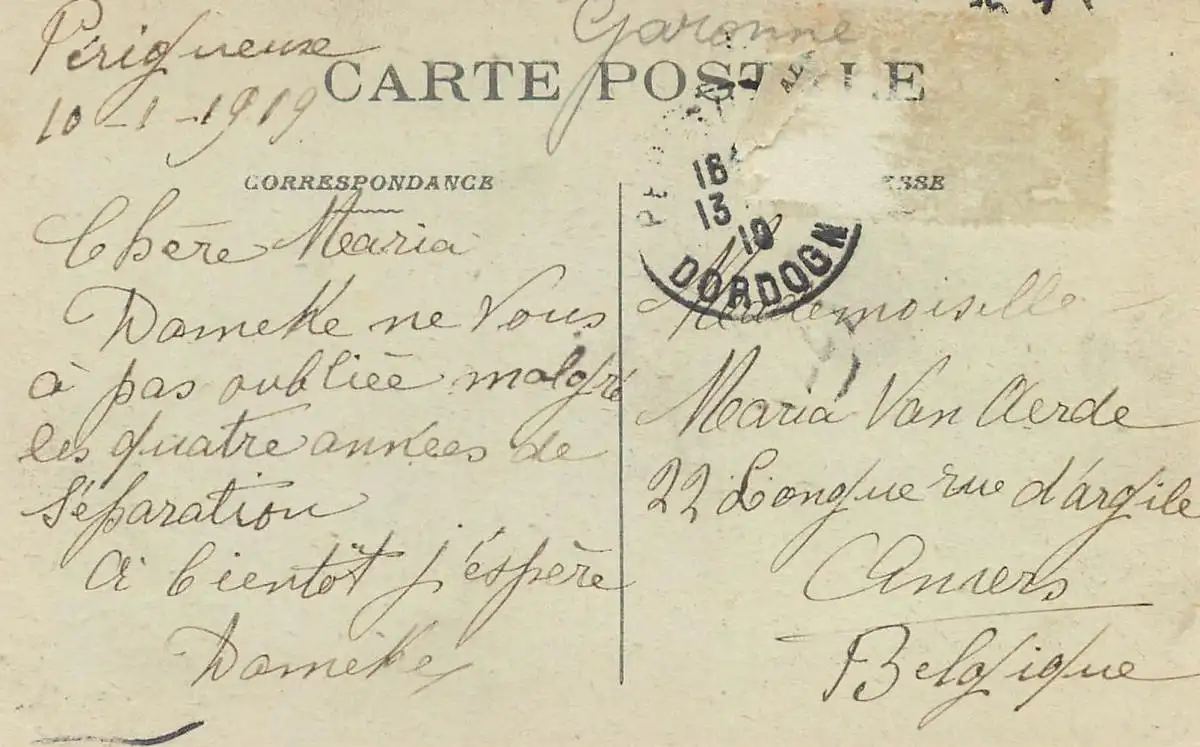 Garonne
Périgueux
10-1-1919
CARTE POSTALE
CORRESPONDANCE
Chère Maria
Domeke ne Vous
à pas oubliée malgré
les quatre années de
Séparation
A bientôt j'éspère
Domeke
16
13
19
DORDOGN
ESSE
Mademoiselle
Maria Van Aerde
22 Longue rue d'argile
Anvers
Belgique